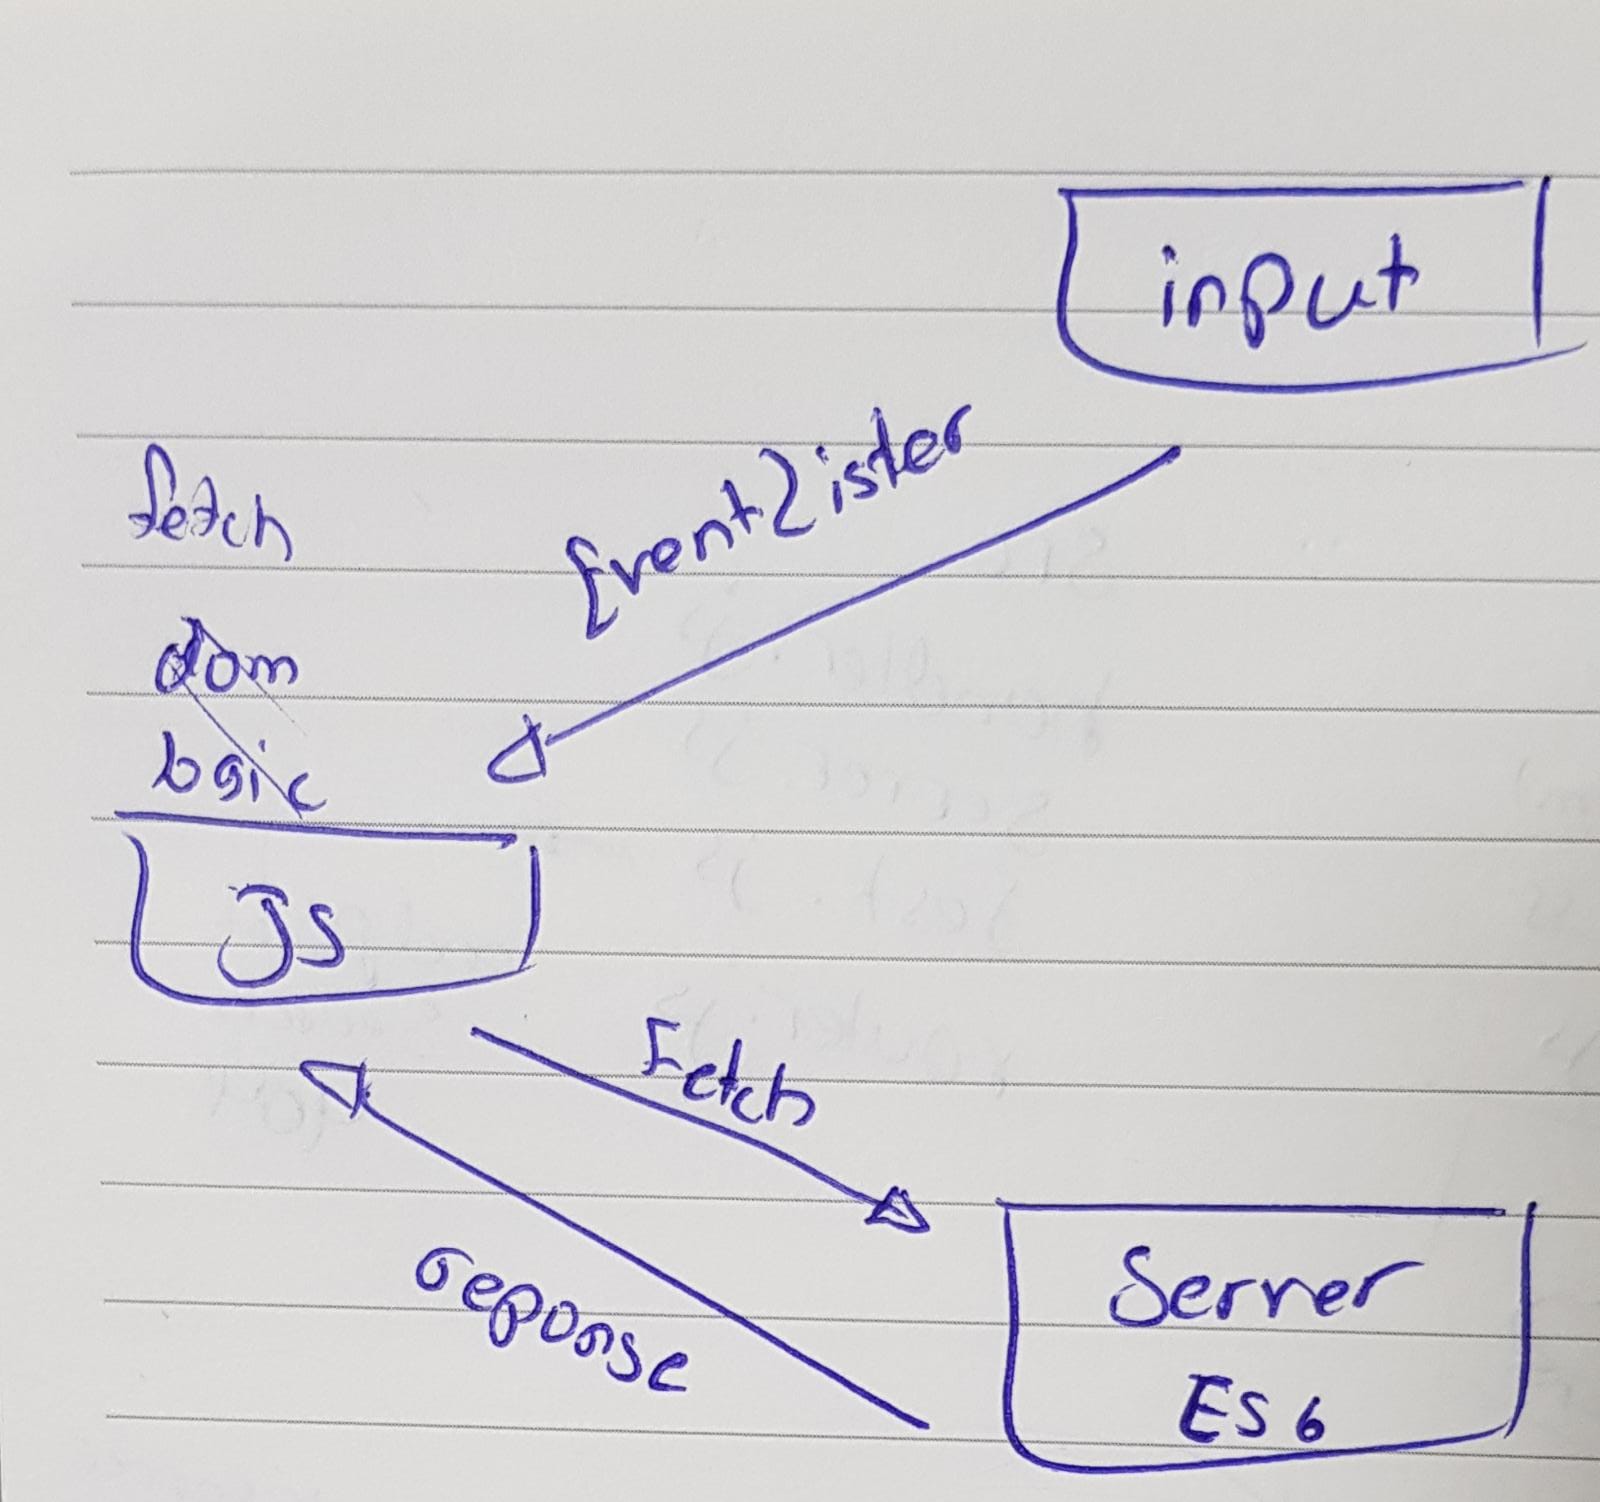 input
EventLister
fetch
dom
logic
JS
Fetch
reponse
Server
ES6